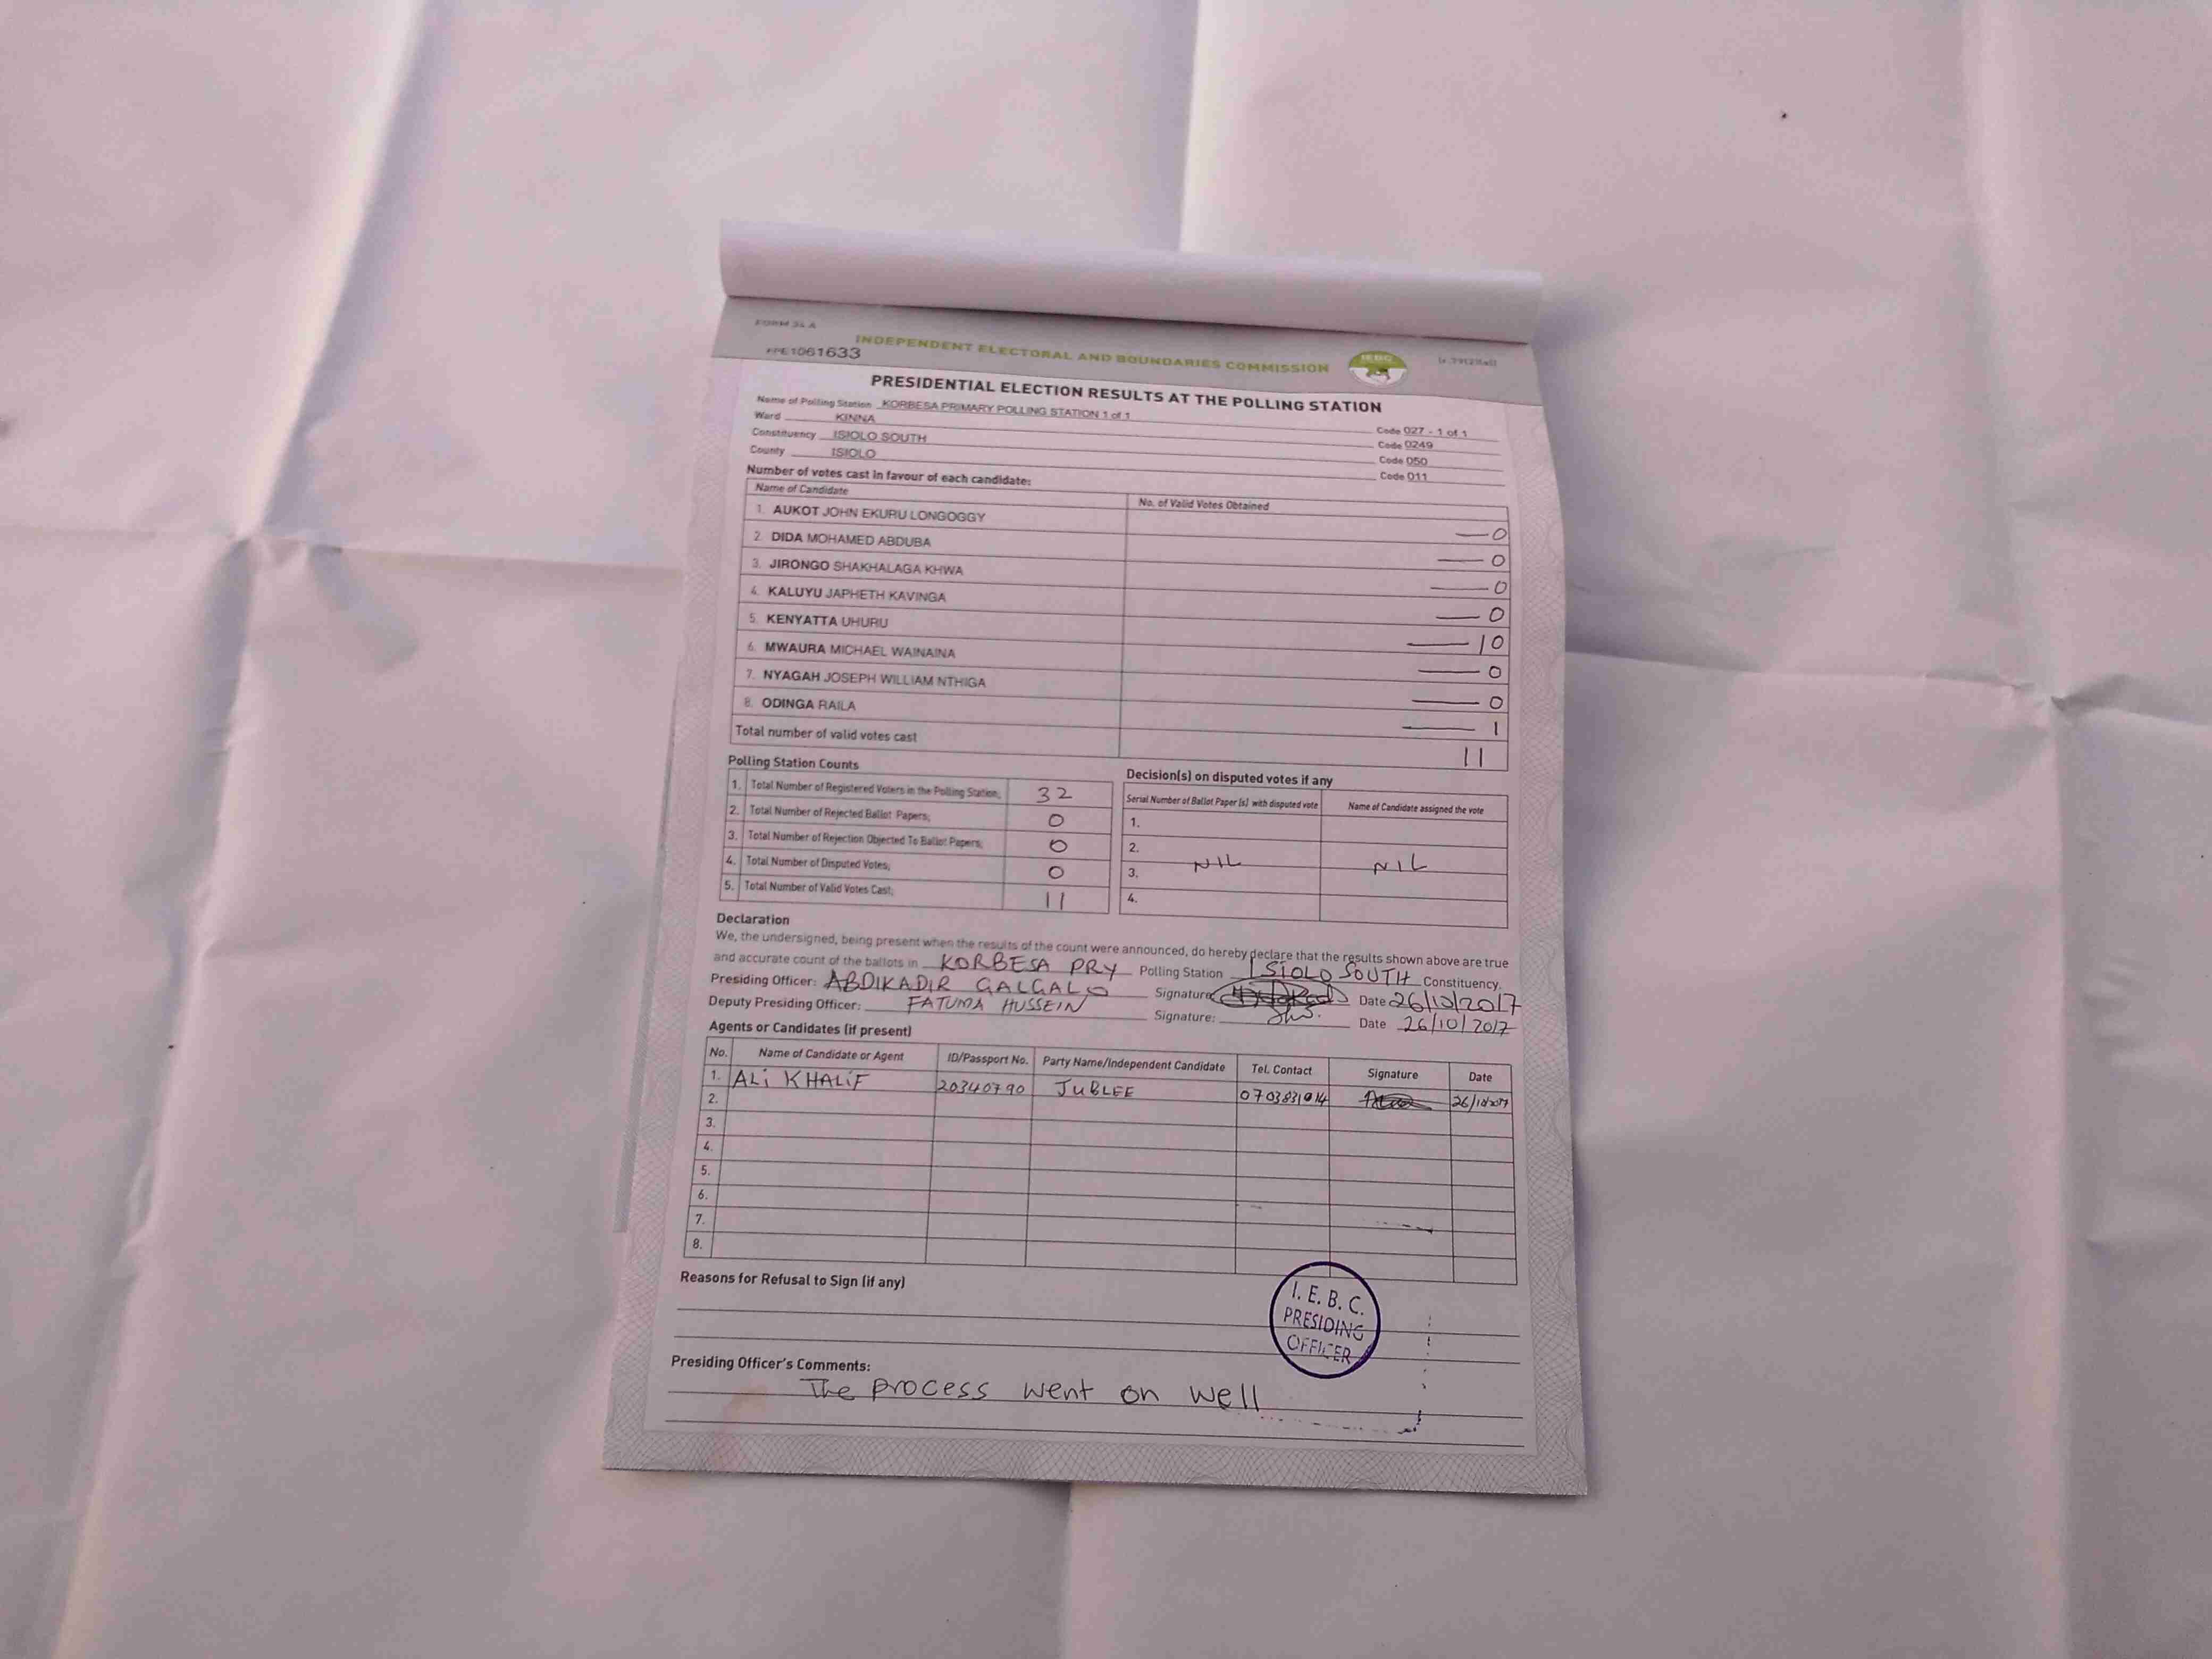 FORM 34 A
INDEPENDENT ELECTORAL AND BOUNDARIES COMMISSION
IEBC
PRESIDENTIAL ELECTION RESULTS AT THE POLLING STATION
Name of Polling Station KORBESA PRIMARY POLLING STATION 1 of 1 Code 027 - 1 of 1
Ward KINNA Code 0249
Constituency ISIOLO SOUTH Code 050
County ISIOLO Code 011
Number of votes cast in favour of each candidate:
Name of Candidate No. of Valid Votes Obtained
1. AUKOT JOHN EKURU LONGOGGY — 0
2. DIDA MOHAMED ABDUBA — 0
3. JIRONGO SHAKHALAGA KHWA — 0
4. KALUYU JAPHETH KAVINGA — 0
5. KENYATTA UHURU — 10
6. MWAURA MICHAEL WAINAINA — 0
7. NYAGAH JOSEPH WILLIAM NTHIGA — 0
8. ODINGA RAILA — 1
Total number of valid votes cast 11
Polling Station Counts
1. Total Number of Registered Voters in the Polling Station; 32
2. Total Number of Rejected Ballot Papers; 0
3. Total Number of Rejection Objected To Ballot Papers; 0
4. Total Number of Disputed Votes; 0
5. Total Number of Valid Votes Cast; 11
Decision(s) on disputed votes if any
Serial Number of Ballot Paper (s) with disputed vote Name of Candidate assigned the vote
1.
2.
NIL NIL
3.
4.
Declaration
We, the undersigned, being present when the results of the count were announced, do hereby declare that the results shown above are true
and accurate count of the ballots in KORBESA PRY Polling Station ISIOLO SOUTH Constituency.
Presiding Officer: ABDIKADIR GALGALO Signature Date 26/10/2017
Deputy Presiding Officer: FATUMA HUSSEIN Signature: Date 26/10/2017
Agents or Candidates (if present)
No. Name of Candidate or Agent ID/Passport No. Party Name/Independent Candidate Tel. Contact Signature Date
1. ALI KHALIF 20340790 JUBLEE 0703831014 26/10/2017
2.
3.
4.
5.
6.
7.
8.
Reasons for Refusal to Sign (if any)
I. E. B. C.
PRESIDING
OFFICER
Presiding Officer's Comments:
The process went on well